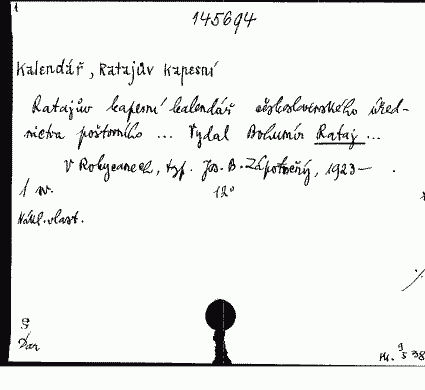 145694
Kalendář, Ratajův kapesní
Ratajův kapesní kalendář československého úřed-
nictva poštovního ... Vydal Bohumín Rataj ...
V Rokycanech, typ. Jos. B. Zápotočný, 1923 - .
1 sv. 12°
Nákl. vlast.
S
Dar